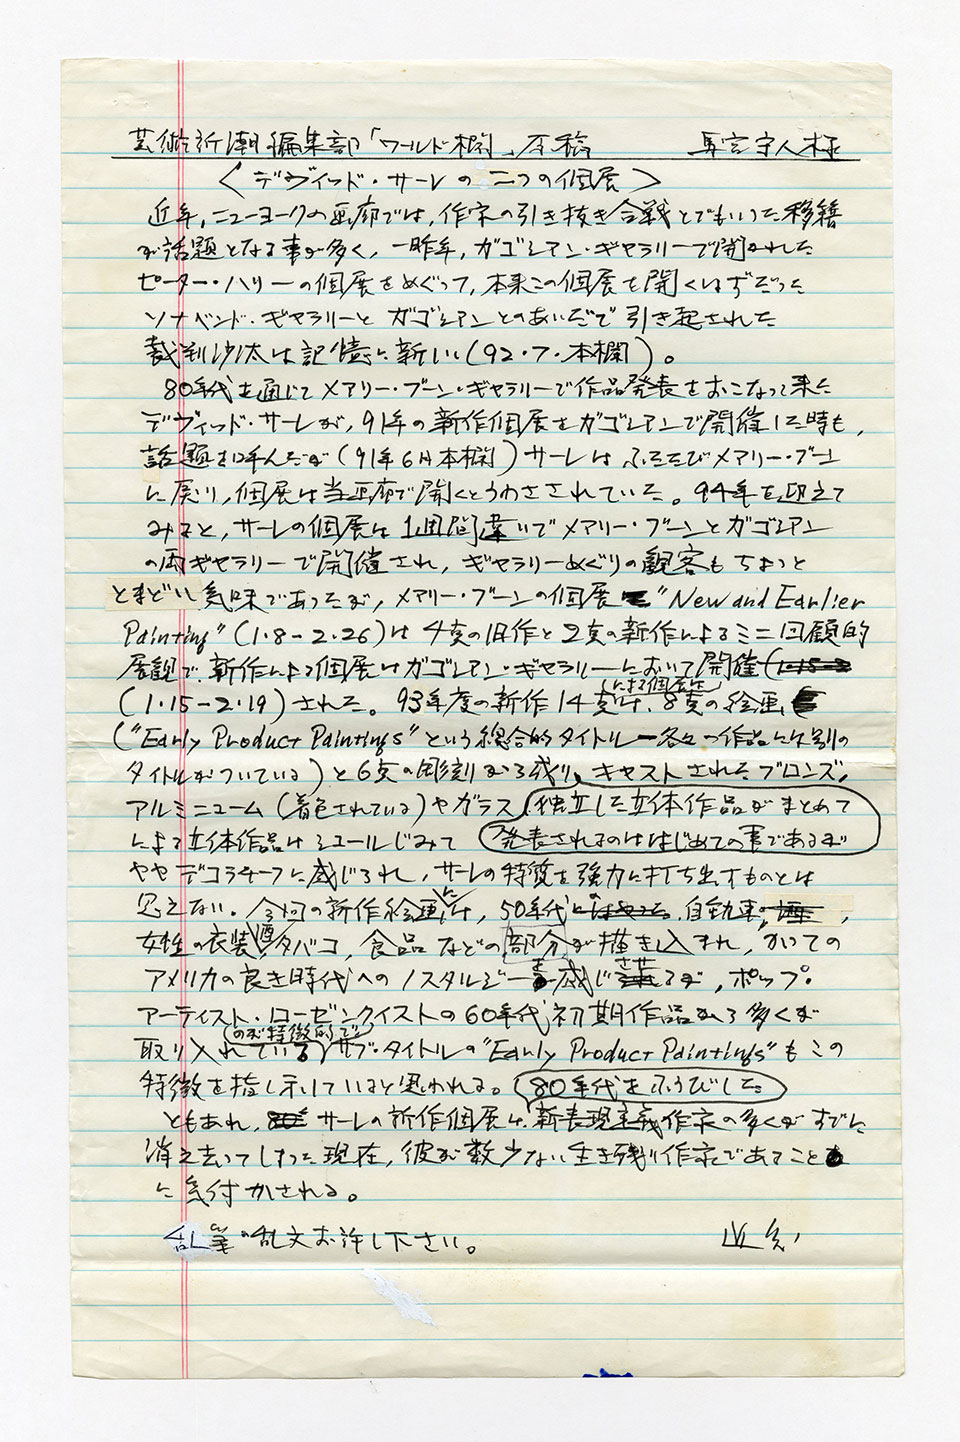 芸術新潮編集部「ワールド欄」原稿 様
〈デヴィッド・サーレの二つの個展〉
近年、ニューヨークの画廊では、作家の引き抜き合戦とでもいった移籍
が話題となる事が多く、一昨年、ガゴシアン・ギャラリーで開かれた
ピーター・ハリーの個展をめぐって、本来この個展を開くはずだった
ソナベンド・ギャラリーとガゴシアンとのあいだで引き起された
裁判沙汰は記憶に新しい(92・7・本欄)。
80年代を通じてメアリー・ブーン・ギャラリーで作品発表をおこなって来た
デヴィッド・サーレが、91年の新作個展をガゴシアンで開催した時も、
話題を呼んだが(91年6月本欄)サーレはふたたびメアリー・ブーン
に戻り、個展は当画廊で開くとうわさされていた。94年を迎えて
みると、サーレの個展は1週間違いでメアリー・ブーンとガゴシアン
の両ギャラリーで開催され、ギャラリーめぐりの観客もちょっと
とまどい気味であったが、メアリー・ブーンの個展 “New and Earlier
Painting” (1・8-2・26)は4点の旧作と2点の新作によるミニ回顧的
展観で、新作による個展はガゴシアン・ギャラリーにおいて開催(1・15-2
による個展は
(1・15-2・19)された。93年度の新作14点は、8点の絵画
(“Early Product Paintings” という総合的タイトル—各々の作品には別の
タイトルがついている)と6点の彫刻から成り、キャストされたブロンズ、
アルミニューム(着色されている)やガラス 独立した立体作品がまとめて
による立体作品はシュールじみて 発表されるのははじめての事であるが
ややデコラチーフに感じられ、サーレの特質を強力に打ち出すものとは
に
思えない。今回の新作絵画は、50年代の 自動車、
酒
女性の衣装、タバコ、食品などの部分が描き込まれ、かつての
させ
アメリカの良き時代へのノスタルジーを感じるが、ポップ・
アーティスト・ローゼンクイストの60年代初期作品から多くが
のが特徴的で
取り入れている サブ・タイトルの “Early Product Paintings” もこの
特徴を指し示していると思われる。 80年代をふうびした
ともあれ、サーレの新作個展は、新表現主義作家の多くがすでに
消え去ってしまった現在、彼が数少ない生き残り作家であること
に気付かされる。
乱筆乱文お許し下さい。